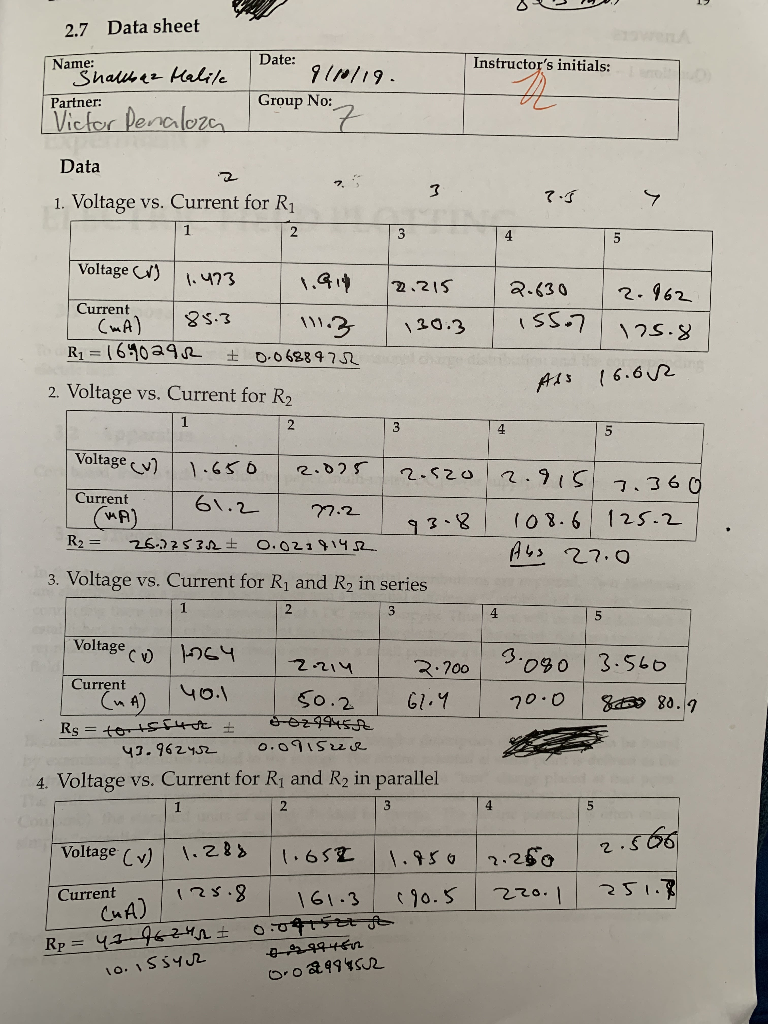 2.7 Data sheet
Name: Date: 9/10/19. Instructor's initials:
Partner: Victor Penaloza Group No: 7
Data
2 3 2.5 4
1. Voltage vs. Current for R1
1 2 3 4 5
Voltage (V) 1.473 1.911 2.215 2.630 2.962
Current (mA) 85.3 111.3 130.3 155.7 175.8
R1 = Ω ± 0.068897Ω
Abs 16.6Ω
2. Voltage vs. Current for R2
1 2 3 4 5
Voltage (V) 1.650 2.075 2.520 2.915 3.360
Current (mA) 61.2 77.2 93.8 108.6 125.2
R2 = 26.7753Ω ± Ω
Abs 27.0
3. Voltage vs. Current for R1 and R2 in series
1 2 3 4 5
Voltage (V) 1.764 2.214 2.700 3.080 3.560
Current (mA) 40.1 50.2 61.4 70.0 80.9
RS = 10.1554Ω ± 0.029945Ω
43.9624Ω 0.091522Ω
4. Voltage vs. Current for R1 and R2 in parallel
1 2 3 4 5
Voltage (V) 1.288 1.652 1.950 2.260 2.566
Current (mA) 125.8 161.3 190.5 220.1 251.7
RP = 43.9624Ω ± 0.091522Ω
0.029945Ω
10.1554Ω 0.029945Ω